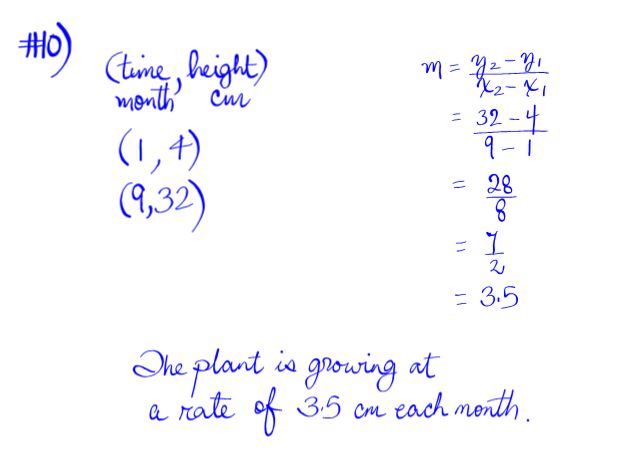 #10)
(time, height)
month cm
(1, 4)
(9,32)
m = y₂ - y₁ / x₂ - x₁
= 32 - 4 / 9 - 1
= 28 / 8
= 7 / 2
= 3.5
The plant is growing at
a rate of 3.5 cm each month.